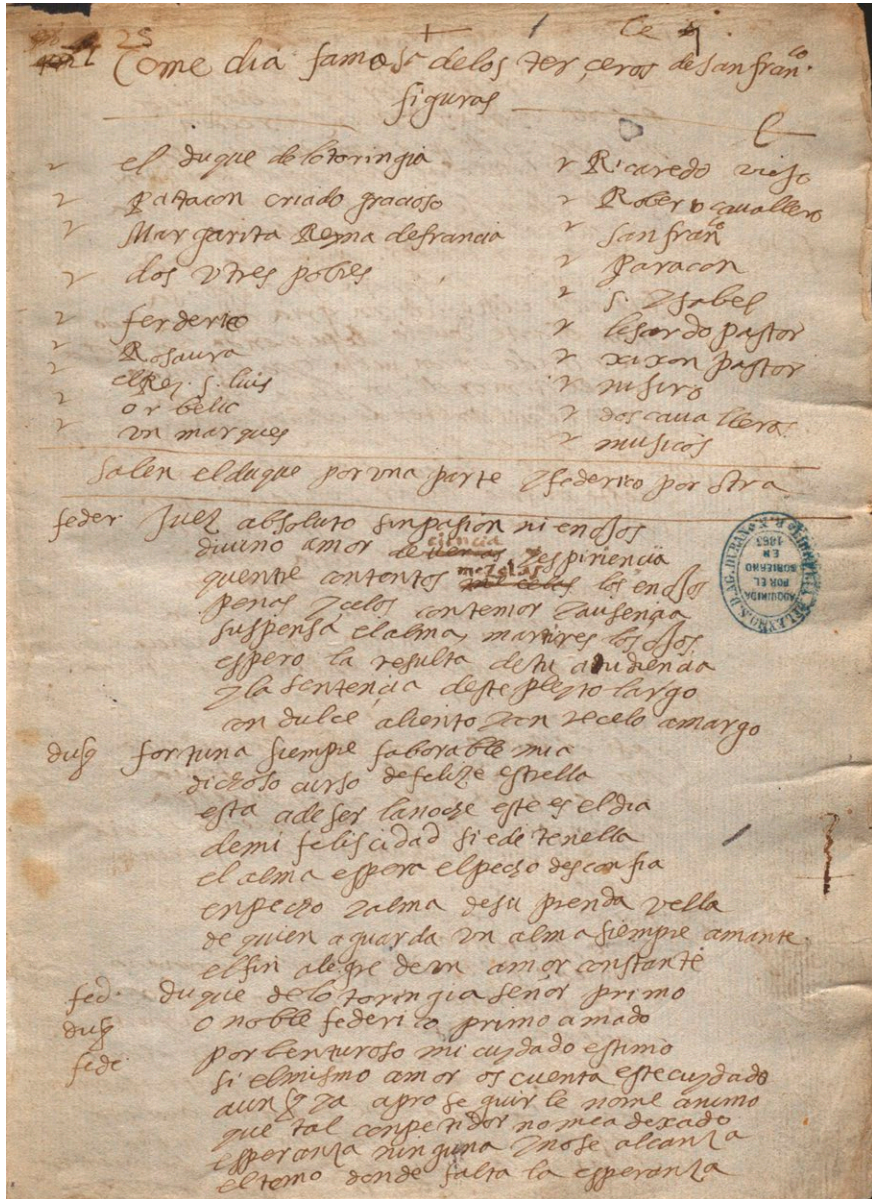 25
Comedia famosa de los terceros de san franco.
figuras
el duque de lotoringia
patacon criado gracioso
Margarita Reyna de francia
dos v tres pobres
ferderico
Rosaura
el Rey. s. luis
orbelic
vn marques
Ricaredo viejo
Roberto cauallero
san franco
paracon
s. ysabel
lisardo pastor
xixon pastor
nisiro
dos caualleros
musicos
salen el duque por vna parte y federico por otra
feder. Juez absoluto sin pasion ni enojos
diuino amor de ciencia y espiriencia
quentre contentos mezclas los enojos
penas y celos con temor y ausencia
suspensa el alma, martires los ojos
espero la resulta de tu audiencia
y la sentencia deste pleyto largo
con dulce aliento y con recelo amargo
duq fortuna siempre faborable mia
dichoso curso de felize estrella
esta a de ser la noche este es el dia
de mi feliscidad si e de tenella
el alma espera el pecho desconfia
en pecho y alma de su prenda vella
de quien aguarda vn alma siempre amante
el fin alegre de vn amor constante
fed. duque de lotoringia señor primo
duq o noble federico primo amado
fede por benturoso mi cuydado estimo
si el mismo amor os cuenta este cuydado
aunq ya a proseguirle no me animo
que tal conpetidor no me a dexado
esperanza ninguna y no se alcanza
el tomo donde falta la esperanza
ADQUIRIDA
POR EL
GOBIERNO
EN
1863